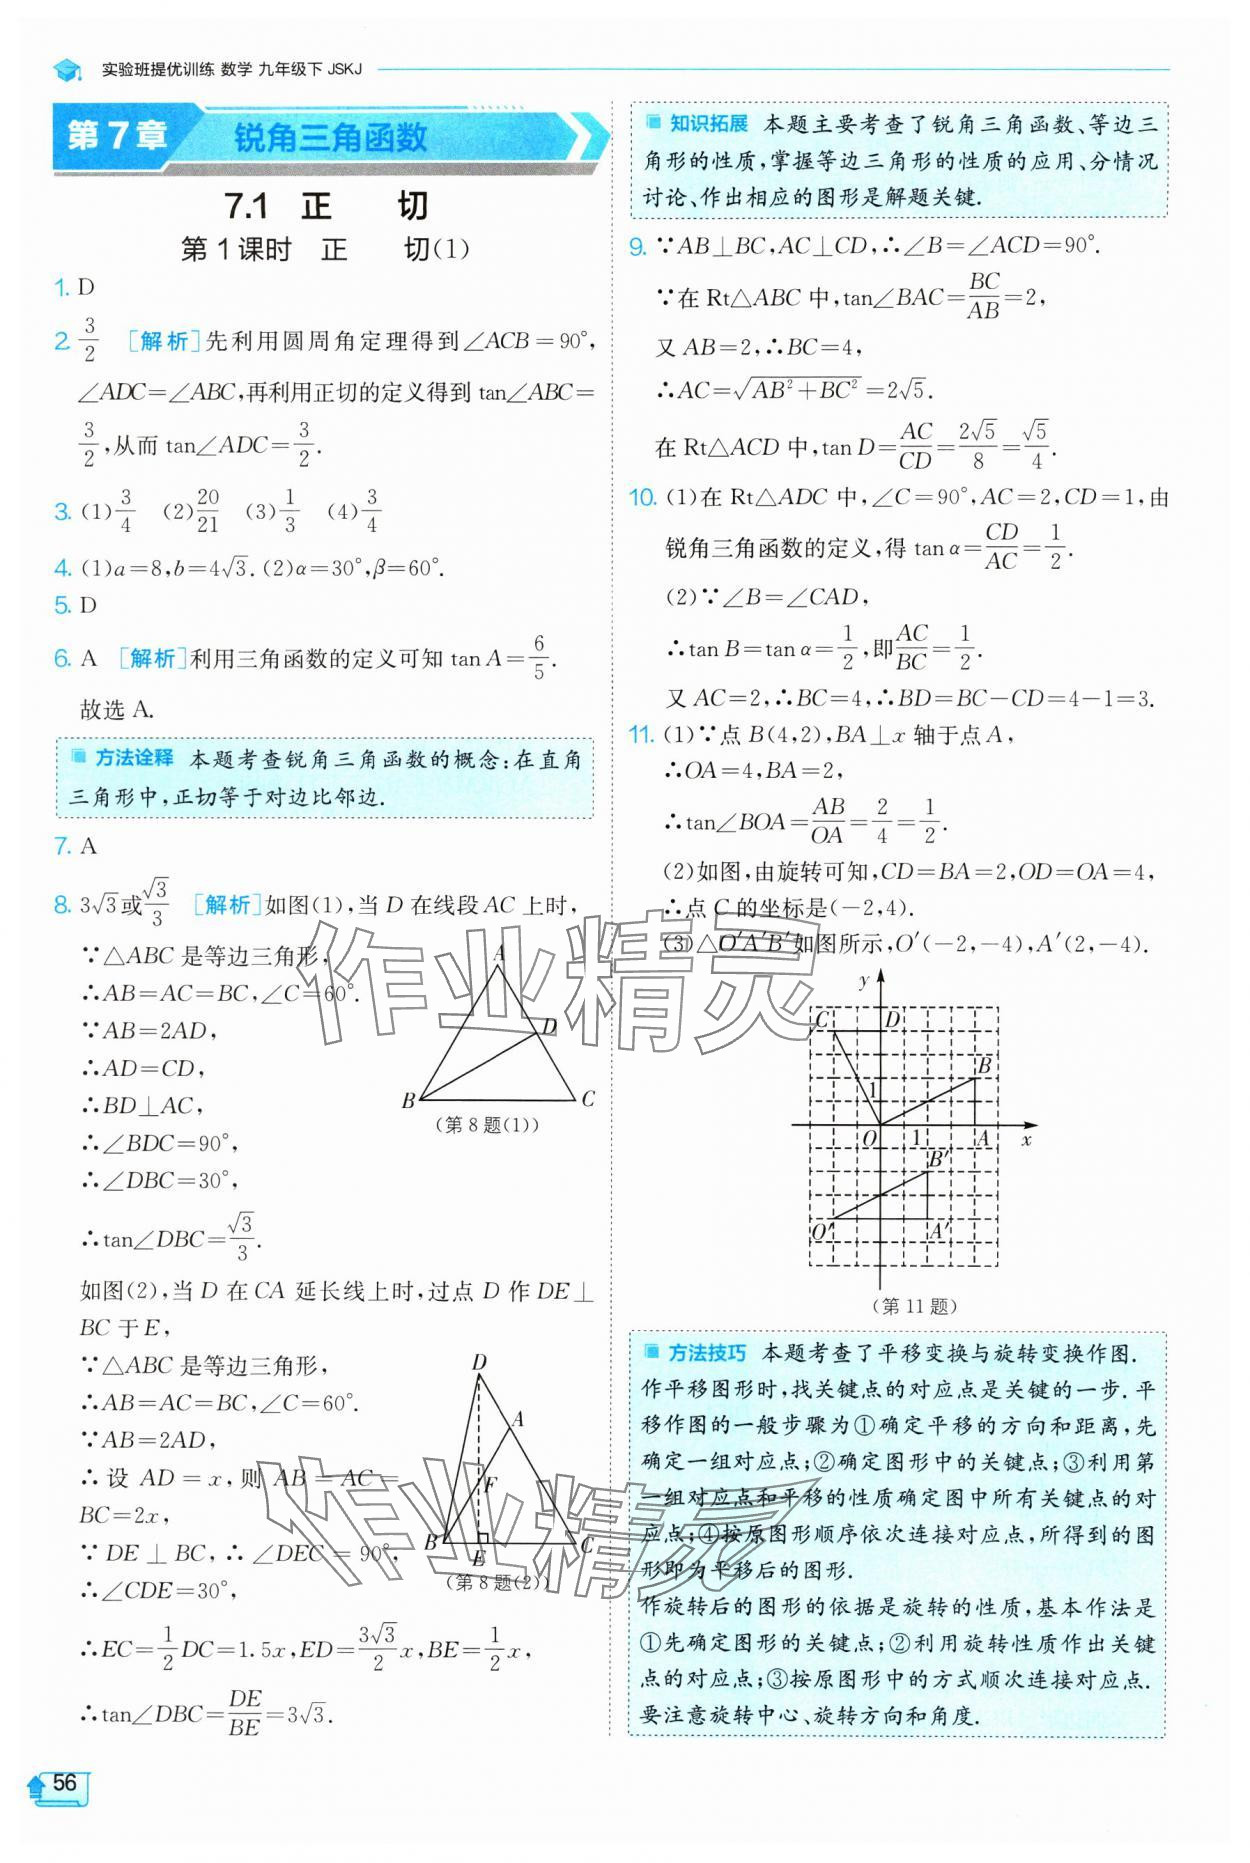 实验班提优训练 数学 九年级下 JSKJ
第7章 锐角三角函数
7.1 正 切
第1课时 正 切(1)
1. D
2. 3/2 [解析]先利用圆周角定理得到∠ACB=90°,
∠ADC=∠ABC,再利用正切的定义得到 tan∠ABC=
3/2,从而 tan∠ADC=3/2.
3. (1)3/4 (2)20/21 (3)1/3 (4)3/4
4. (1)a=8,b=4√3. (2)α=30°,β=60°.
5. D
6. A [解析]利用三角函数的定义可知 tan A=6/5.
故选 A.
方法诠释 本题考查锐角三角函数的概念:在直角
三角形中,正切等于对边比邻边.
7. A
8. 3√3或√3/3 [解析]如图(1),当 D 在线段AC上时,
∵△ABC 是等边三角形,
∴AB=AC=BC,∠C=60°.
∵AB=2AD,
∴AD=CD,
∴BD⊥AC,
∴∠BDC=90°,
∴∠DBC=30°,
∴tan∠DBC=√3/3.
A
D
B C
(第8题(1))
如图(2),当 D 在 CA 延长线上时,过点 D 作 DE⊥
BC 于 E,
∵△ABC 是等边三角形,
∴AB=AC=BC,∠C=60°.
∵AB=2AD,
∴设 AD=x,则 AB=AC=
BC=2x,
∵DE⊥BC,∴∠DEC=90°,
∴∠CDE=30°,
∴EC=1/2DC=1.5x,ED=3√3/2x,BE=1/2x,
∴tan∠DBC=DE/BE=3√3.
D
A
F
B E C
(第8题(2))
56
知识拓展 本题主要考查了锐角三角函数、等边三
角形的性质,掌握等边三角形的性质的应用、分情况
讨论、作出相应的图形是解题关键.
9. ∵AB⊥BC,AC⊥CD,∴∠B=∠ACD=90°.
∵在 Rt△ABC 中,tan∠BAC=BC/AB=2,
又 AB=2,∴BC=4,
∴AC=√(AB²+BC²)=2√5.
在 Rt△ACD 中,tan D=AC/CD=2√5/8=√5/4.
10. (1)在 Rt△ADC 中,∠C=90°,AC=2,CD=1,由
锐角三角函数的定义,得 tan α=CD/AC=1/2.
(2)∵∠B=∠CAD,
∴tan B=tan α=1/2,即AC/BC=1/2.
又 AC=2,∴BC=4,∴BD=BC-CD=4-1=3.
11. (1)∵点 B(4,2),BA⊥x 轴于点 A,
∴OA=4,BA=2,
∴tan∠BOA=AB/OA=2/4=1/2.
(2)如图,由旋转可知,CD=BA=2,OD=OA=4,
∴点 C 的坐标是(-2,4).
(3)△O′A′B′如图所示,O′(-2,-4),A′(2,-4).
y
C D
B
1
O 1 A x
B′
O′ A′
(第11题)
方法技巧 本题考查了平移变换与旋转变换作图.
作平移图形时,找关键点的对应点是关键的一步.平
移作图的一般步骤为①确定平移的方向和距离,先
确定一组对应点;②确定图形中的关键点;③利用第
一组对应点和平移的性质确定图中所有关键点的对
应点;④按原图形顺序依次连接对应点,所得到的图
形即为平移后的图形.
作旋转后的图形的依据是旋转的性质,基本作法是
①先确定图形的关键点;②利用旋转性质作出关键
点的对应点;③按原图形中的方式顺次连接对应点.
要注意旋转中心、旋转方向和角度.
作业精灵
作业精灵